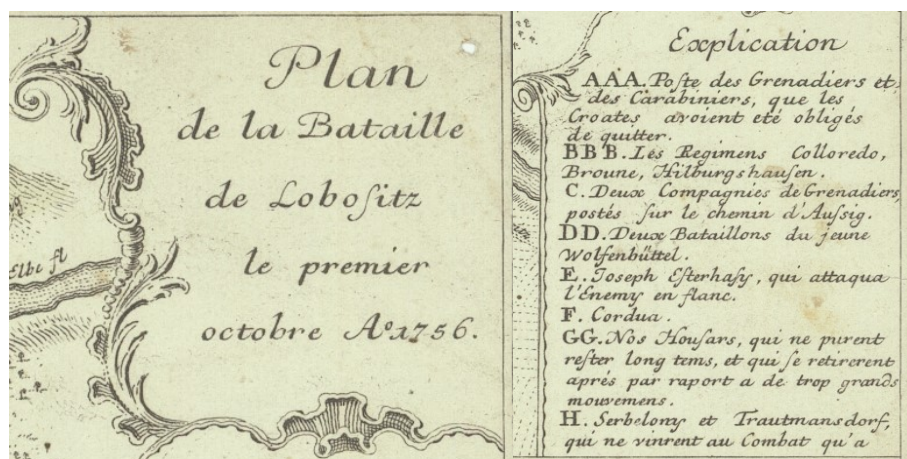 Plan
de la Bataille
de Loboſitz
le premier
octobre Aº.1756.
Elbe fl
Explication
AAA. Poſte des Grenadiers et
des Carabiniers, que les
Croates avoient eté obligés
de quitter.
BBB. Les Regimens Colloredo,
Broune, Hilburgshauſen.
C. Deux Compagnies de Grenadiers,
postés ſur le chemin d'Auſsig.
DD. Deux Bataillons du jeune
Wolfenbüttel.
E. Joseph Eſterhaſy, qui attaqua
l'Enemy en flanc.
F. Cordua.
GG. Nos Houſars, qui ne purent
reſter long tems, et qui ſe retirerent
aprés par raport a de trop grands
mouvemens.
H. Serbelony et Trautmansdorf,
qui ne vinrent au Combat qu'a